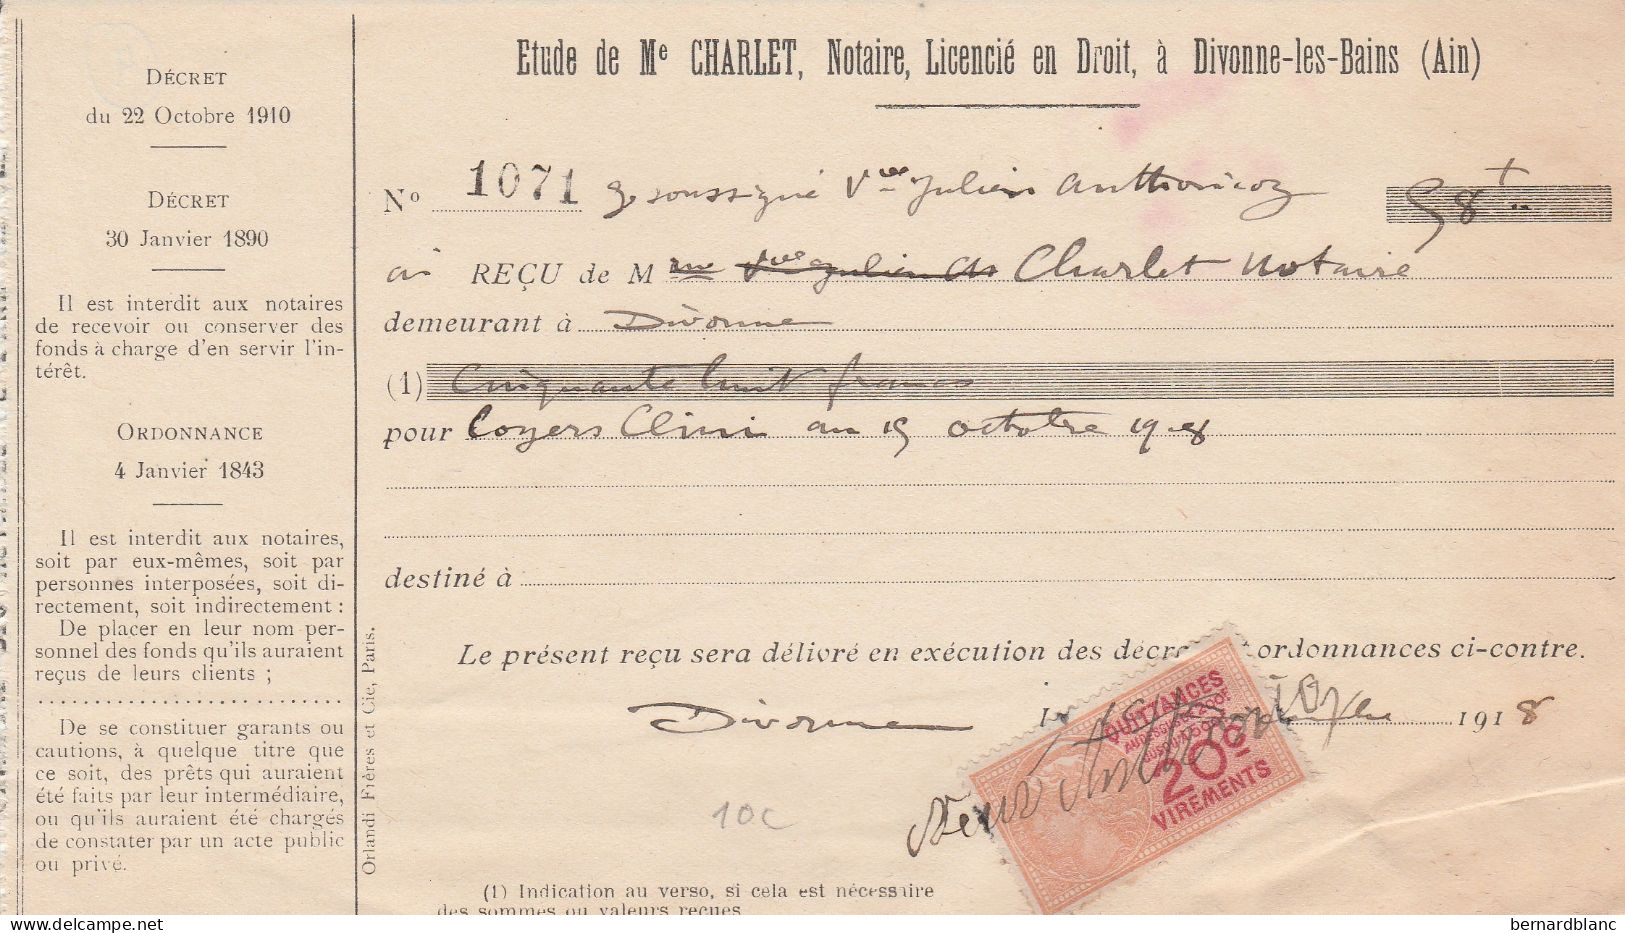 DÉCRET
du 22 Octobre 1910
DÉCRET
30 Janvier 1890
Il est interdit aux notaires
de recevoir ou conserver des
fonds à charge d'en servir l'in-
térêt.
ORDONNANCE
4 Janvier 1843
Il est interdit aux notaires,
soit par eux-mêmes, soit par
personnes interposées, soit di-
rectement, soit indirectement :
De placer en leur nom per-
sonnel des fonds qu'ils auraient
reçus de leurs clients ;
De se constituer garants ou
cautions, à quelque titre que
ce soit, des prêts qui auraient
été faits par leur intermédiaire,
ou qu'ils auraient été chargés
de constater par un acte public
ou privé.
Orlandi Frères et Cie, Paris.
Etude de Me CHARLET, Notaire, Licencié en Droit, à Divonne-les-Bains (Ain)
No 1071 Je soussigné Vve Julien Anthonioz 58
ai REÇU de M me Vve Julien An Charlet Notaire
demeurant à Divonne
(1) Cinquante huit francs
pour loyers Clini au 15 octobre 1918
destiné à
Le présent reçu sera délivré en exécution des décrets et ordonnances ci-contre.
Divonne 1918
QUITTANCES
20c
VIREMENTS
Veuve Anthonioz
10c
(1) Indication au verso, si cela est nécessaire
des sommes ou valeurs reçues
bernardblanc